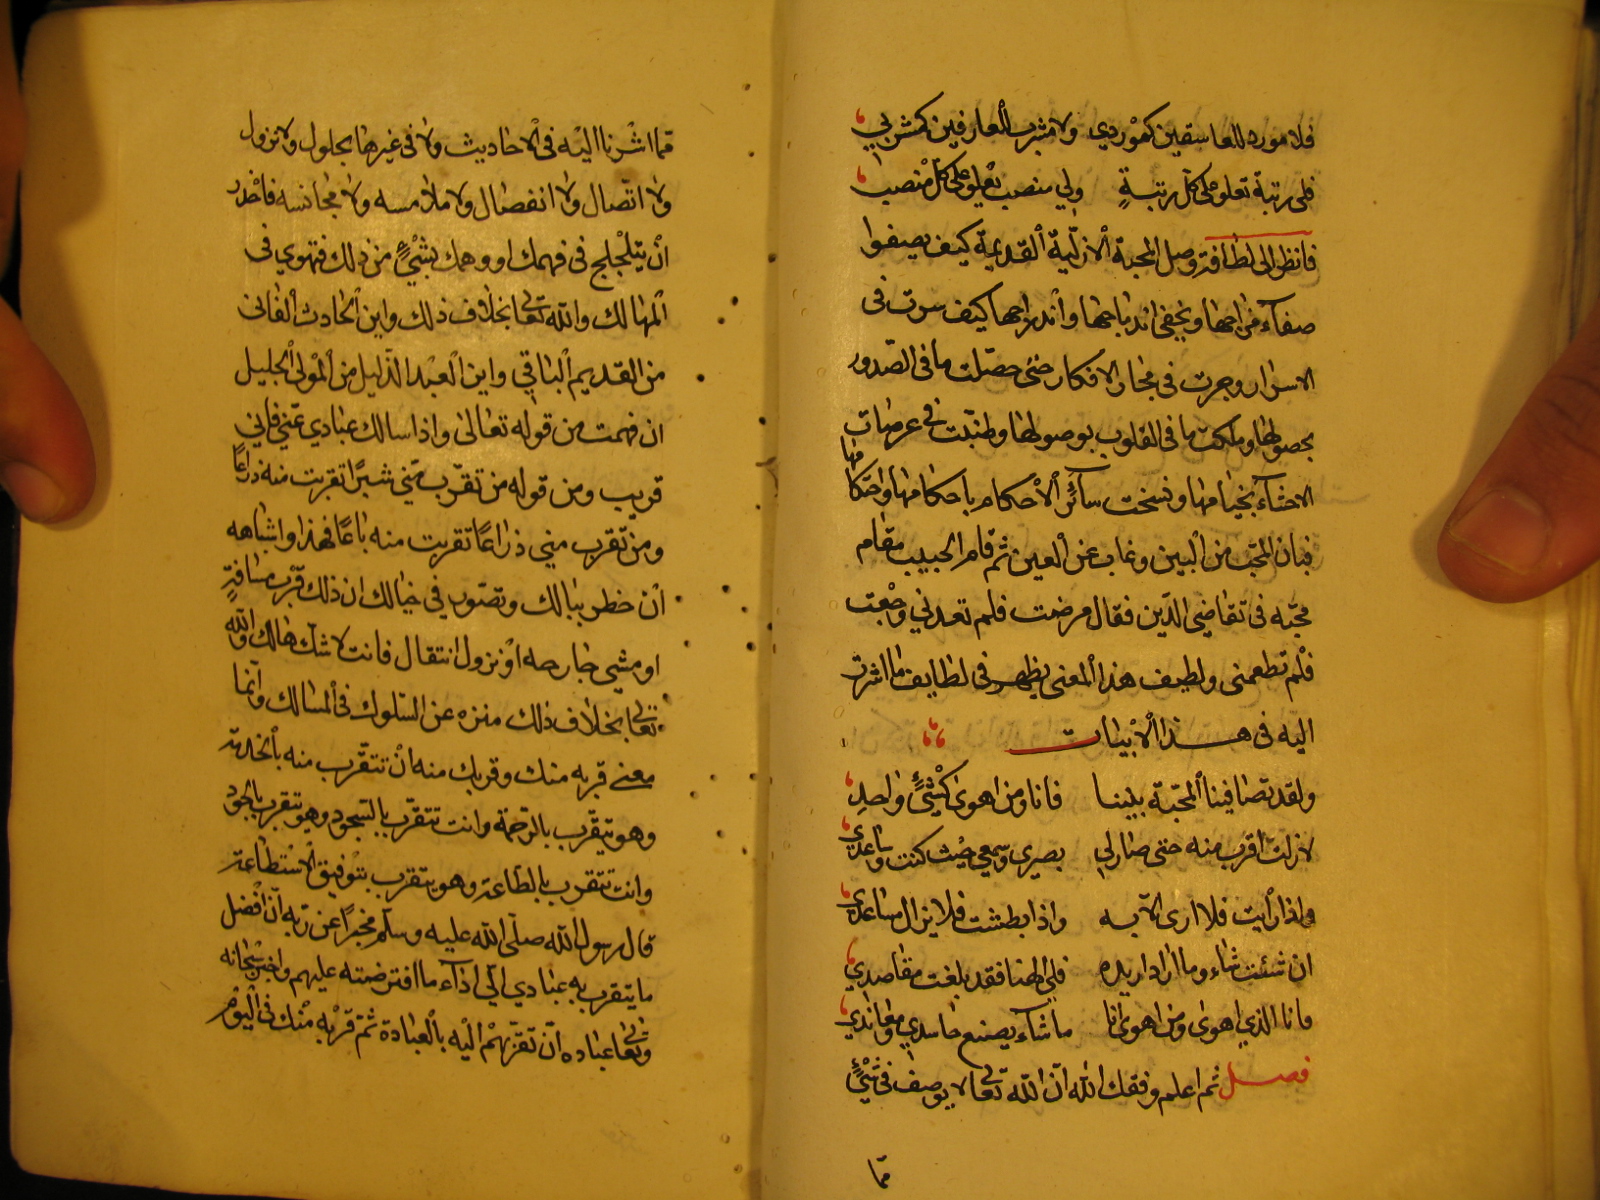 فلا مورد للعاشقين كموردي ولا مشرب العارفين كمشربي
فلي رتبة تعلو على كل رتبةٍ ولي منصب يعلو على كل منصب
فانظر الى لطافة وصل المحبة الازلية القديمة كيف يصفوا
صفآء مزاجها ويخفى اندباجها واندراجها كيف سرت فى
الاسرار وجرت فى مجار الافكار حتى حصّلت ما فى الصدور
بحصولها وملكت ما فى القلوب بوصولها وطنّبت فى عرصات
الاحشآء بخيامها ونسخت سآئر الأحكام باحكامها واحكامها
فبان المحب من البين وغاب عن العين ثم قام الحبيب مقام
محبّه فى تقاضي الدّين فقال مرضت فلم تعدني وجعت
فلم تطعمنى ولطيف هذا المعنى يظهر فى لطايف ما اشرت
اليه فى هذا الأبيات
ولقد تصافينا المحبّة بيننا فانا ومن اهوى كشيءٍ واحدِ
لا زلت اقرب منه حتى صار لي بصرى وسمعي حيث كنت وساعدي
واذا رأيت فلا ارى الا به واذا بطشت فلا يزال مساعدي
ان شئت شاء وما اراد اريده فلي الهنا فقد بلغت مقاصدي
فانا الذي اهوى ومن اهوى انا ما شآء يصنع حاسدي ومعاندي
فصل ثم اعلم وفقك الله ان الله تعالى لا يوصف فى شيءٍ
مما
مما اشرنا اليه فى الأحاديث ولا فى غيرها بحلول ولا نزول
ولا اتّصال ولا انفصال ولا ملامسه ولا مجانسه فاحذر
أن يتلجلج فى فهمك او وهمك بشيءٍ من ذلك فتهوي فى
المهالك والله تعالى بخلاف ذلك واين الحادث الفانى
من القديم الباقي واين العبد الذليل من المولى الجليل
ان فهمت من قوله تعالى واذا سالك عبادي عنّي فاني
قريب ومن قوله من تقرّب منّي شبرًا تقربت منه ذراعًا
ومن تقرب مني ذراعًا تقربت منه باعًا فهذا واشباهه
أن خطر ببالك وتصّور في خيالك ان ذلك قرب مسافةٍ
او مشي جارحه او نزول انتقال فانت لا شك هالك والله
تعالى بخلاف ذلك منزه عن السّلوك فى المسالك وانّما
معنى قربه منك وقربك منه أن تتقّرب منه بالخدمة
وهو يتقّرب بالرّحمة وانت تتقرّب بالسّجود وهو يتقرب بالجود
وانت تتقرب بالطّاعة وهو يتقرب بتوفيق الاستطاعة
قال رسول الله صلّى الله عليه وسلّم مخبرًا عن ربه أنّ أفضل
ما يتقرب به عبادي اليّ ادآء ما افترضته عليهم واخبر سبحانه
وتعالى عباده انّ تقرّبهم اليه بالعبادة ثمّ قربه منك فى اليوم